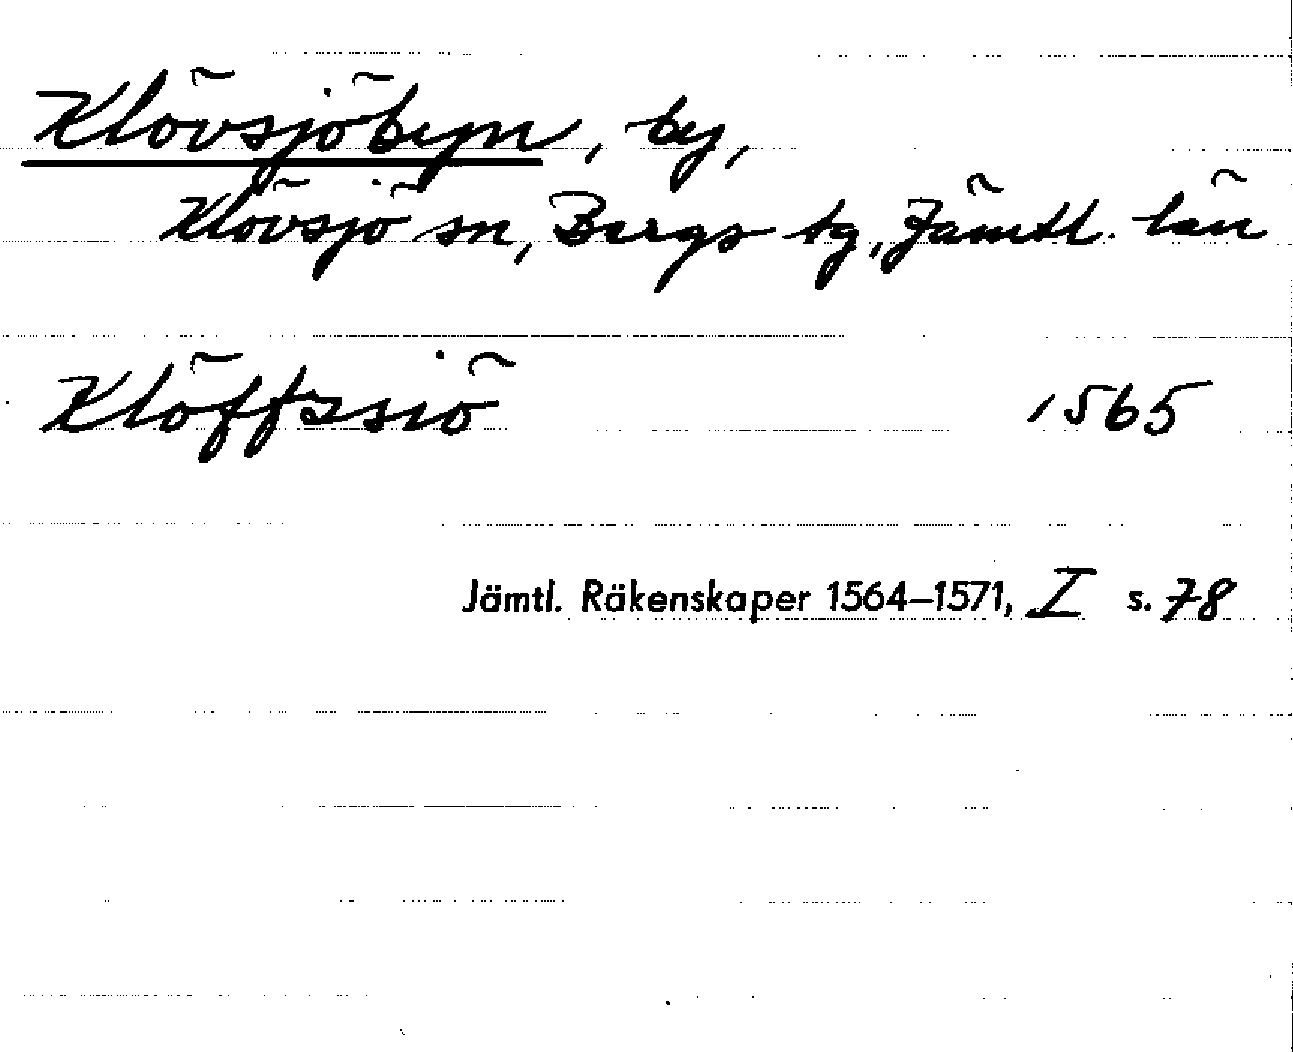 Klövsjöbyn, by,
Klövsjö sn, Bergs tg, Jämtl. län
Klöffssiö 1565
Jämtl. Räkenskaper 1564–1571, I s. 78